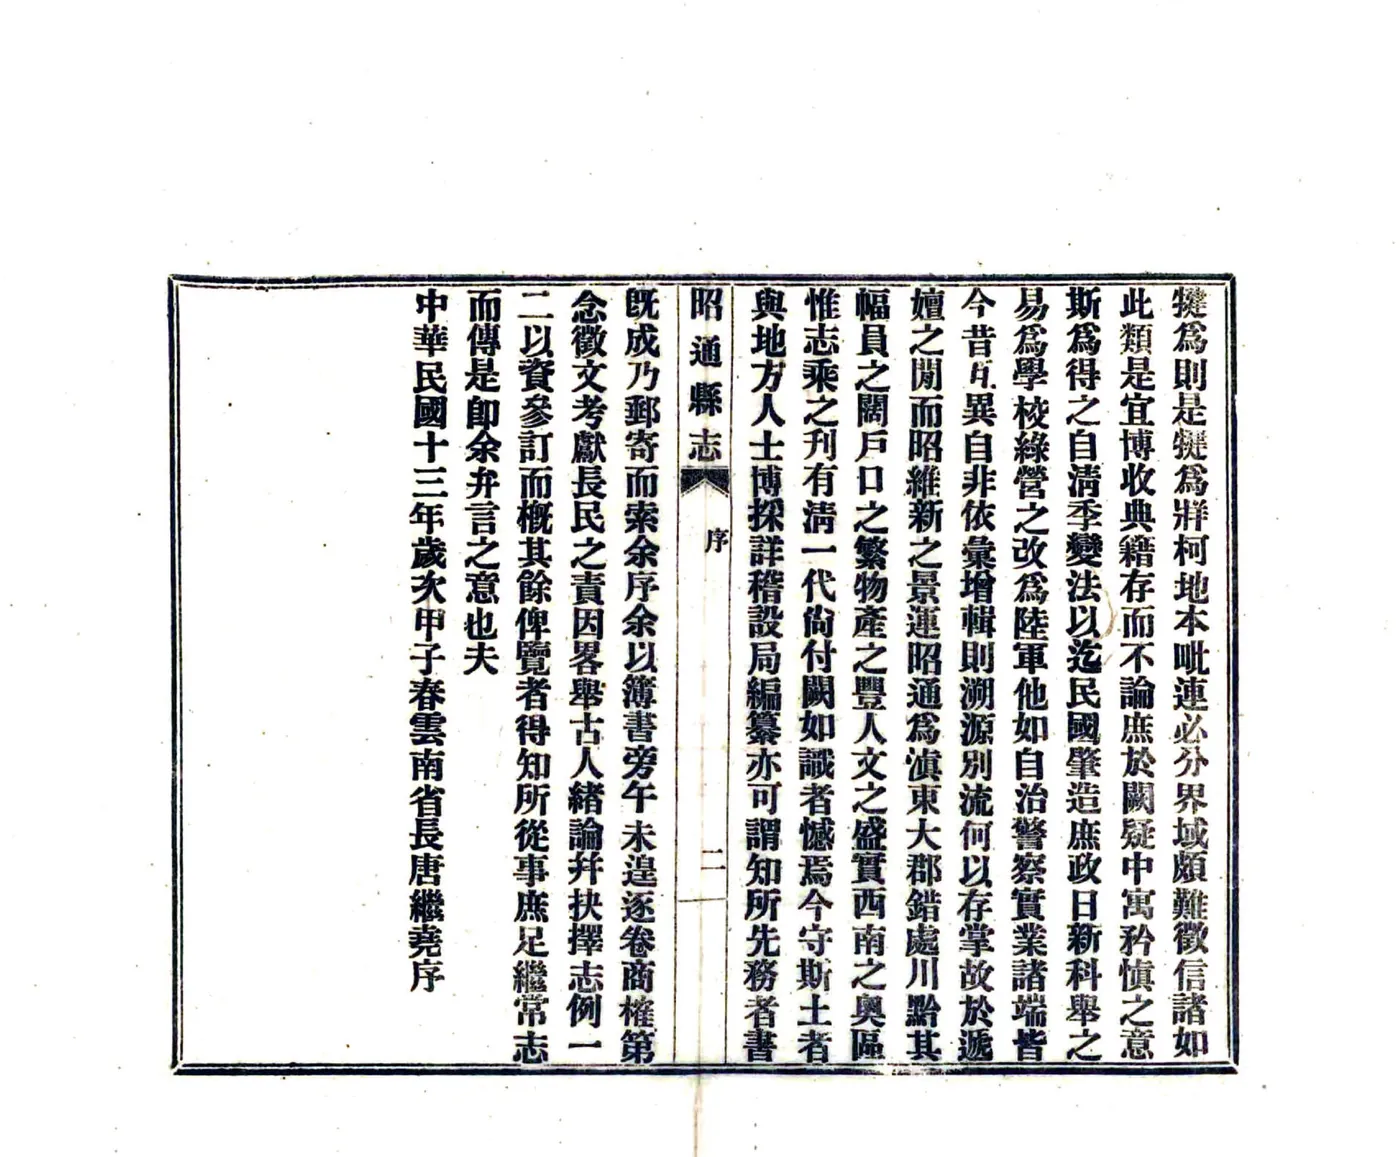 犍爲則是犍爲牂柯地本毗連必分界域頗難徵信諸如
此類是宜博收典籍存而不論庶於闕疑中寓矜愼之意
斯爲得之自淸季變法以迄民國肇造庶政日新科舉之
易爲學校綠營之改爲陸軍他如自治警察實業諸端皆
今昔互異自非依彙增輯則溯源別流何以存掌故於遞
嬗之閒而昭維新之景運昭通爲滇東大郡錯處川黔其
幅員之闊戶口之繁物產之豐人文之盛實西南之奧區
惟志乘之刋有淸一代尙付闕如識者憾焉今守斯土者
與地方人士博採詳稽設局編纂亦可謂知所先務者書
昭通縣志
序
二
旣成乃郵寄而索余序余以簿書旁午未遑逐卷商榷第
念徵文考獻長民之責因畧舉古人緖論幷抉擇志例一
二以資參訂而槪其餘俾覽者得知所從事庶足繼常志
而傳是卽余弁言之意也夫
中華民國十三年歲次甲子春雲南省長唐繼堯序